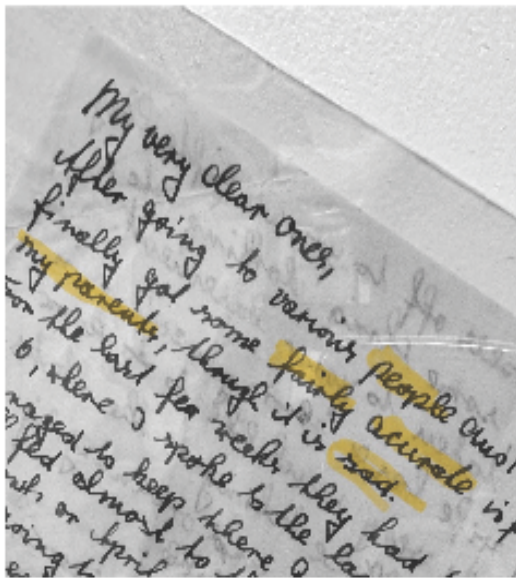 My very dear ones,
After going to various people and
finally got some fairly accurate
my parents, though it is sad.
for the last few weeks they had
6, where I spoke to the
naged to keep there
fed almost to
or April
going